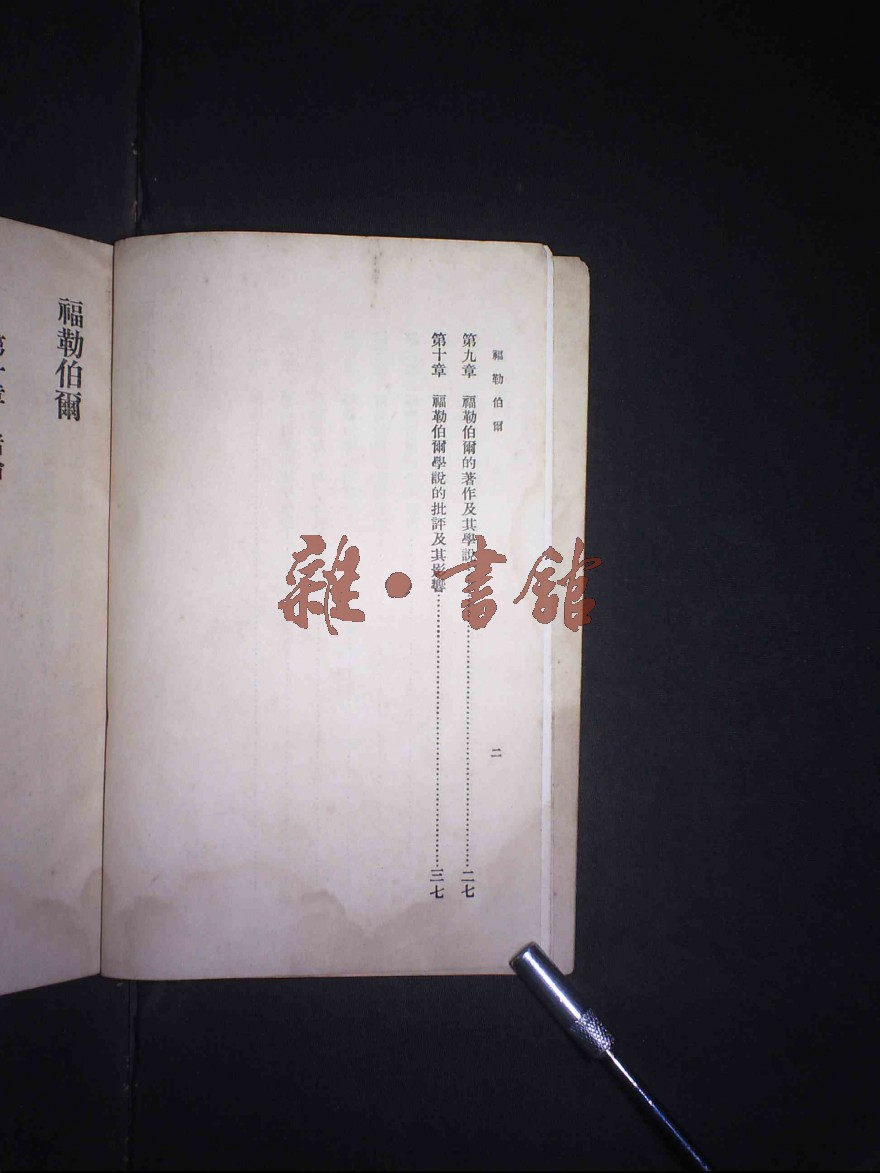 福勒伯爾
二
第九章 福勒伯爾的著作及其學說……二七
第十章 福勒伯爾學說的批評及其影響……三七
福勒伯爾
雜·書館